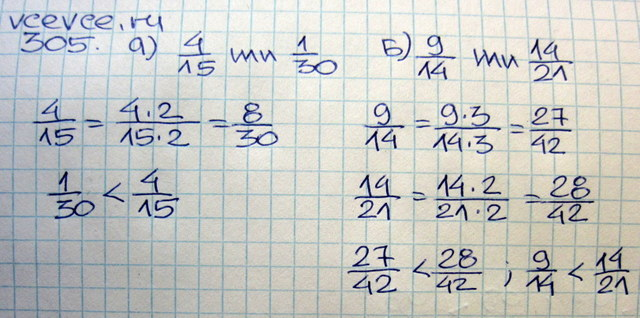 vcevce.ru
305. а) 4/15 или 1/30
4/15 = 4·2/15·2 = 8/30
1/30 < 4/15
Б) 9/14 или 14/21
9/14 = 9·3/14·3 = 27/42
14/21 = 14·2/21·2 = 28/42
27/42 < 28/42 ; 9/14 < 14/21